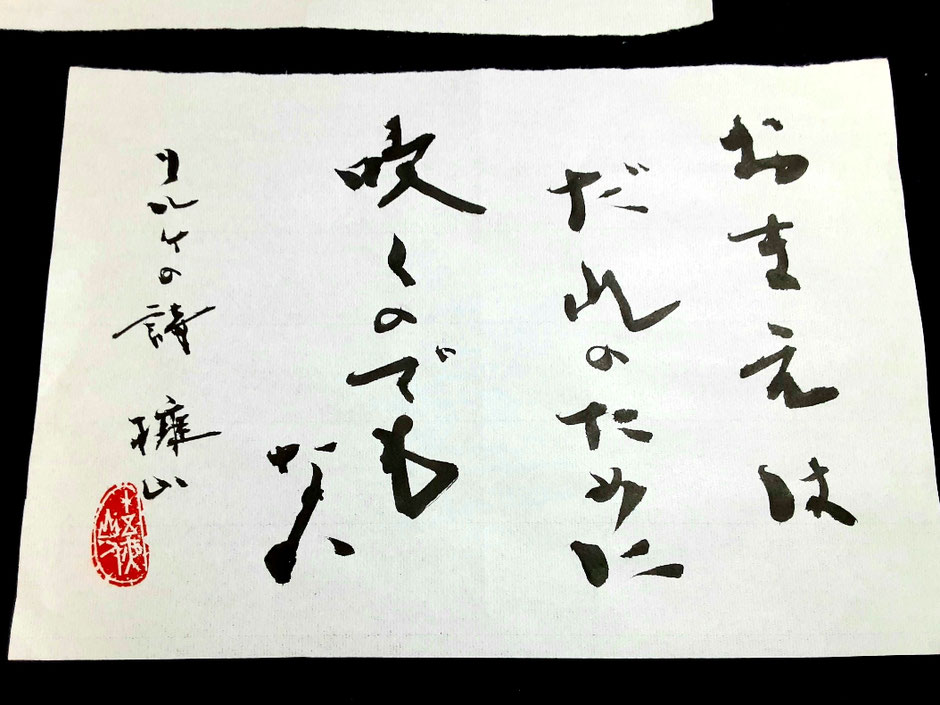 おまえは
だれのために
吹くのでも
ない
リルケの詩
山